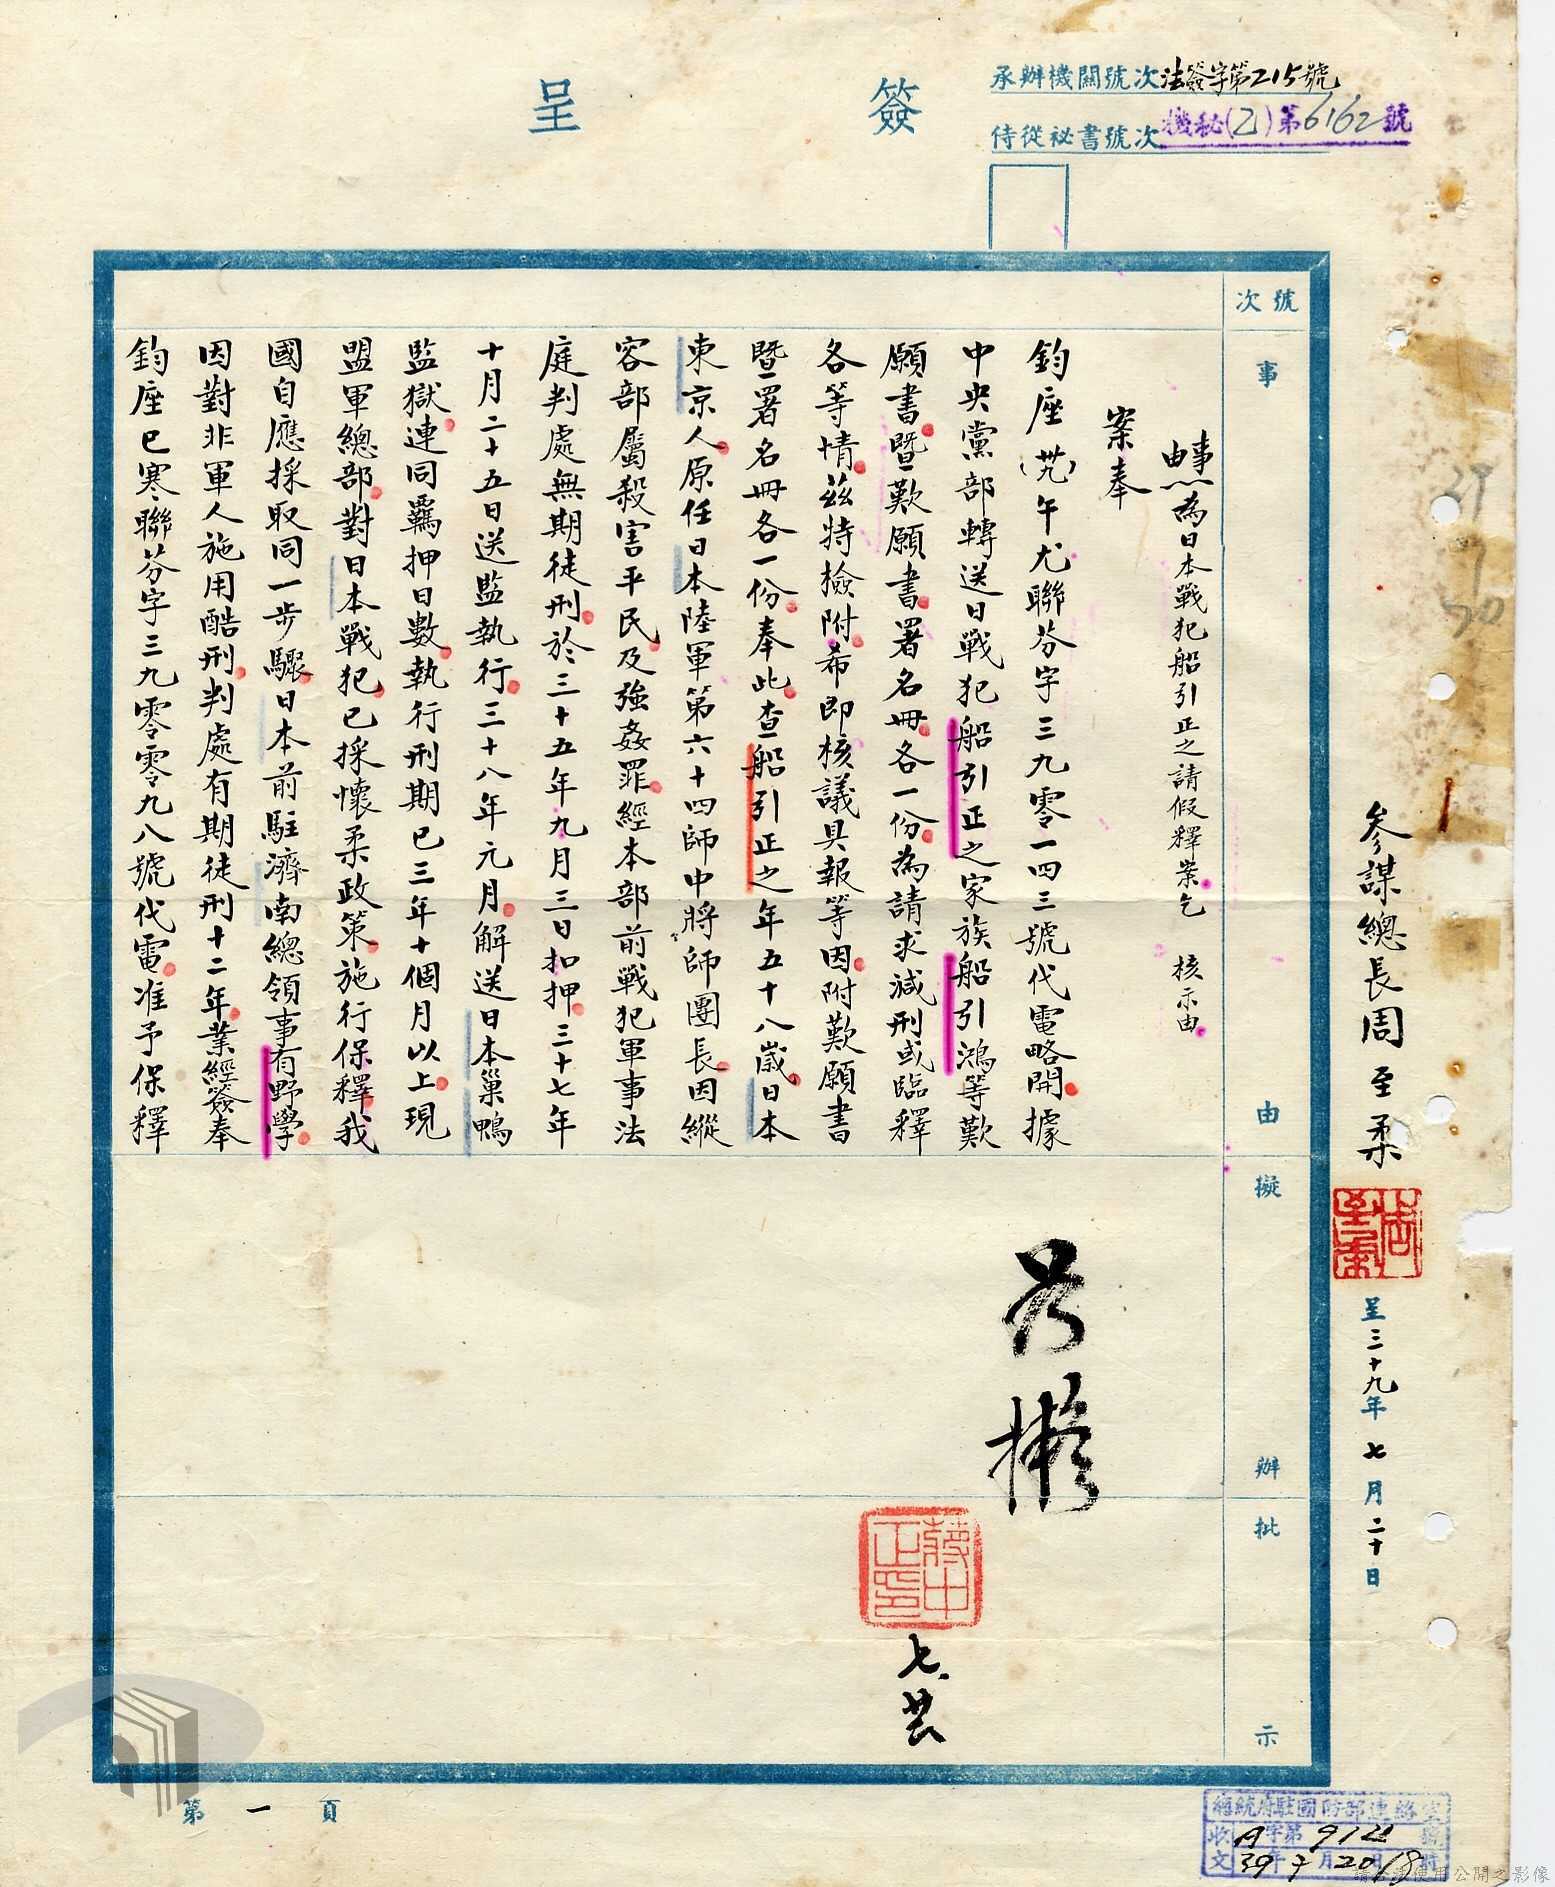 簽呈
承辦機關號次法簽字第215號
侍從祕書號次機秘(乙)第6162號
參謀總長周至柔
周至柔
呈三十九年七月二十日
號次
事由
擬辦
批示
事由為日本戰犯船引正之請假釋案乞 核示由
案奉
鈞座(卅九)午尤聯芬字三九零一四三號代電略開據
中央黨部轉送日戰犯船引正之家族船引鴻等歎
願書暨歎願書署名冊各一份為請求減刑或臨釋
各等情茲特檢附希即核議具報等因附歎願書
暨署名冊各一份奉此查船引正之年五十八歲日本
東京人原任日本陸軍第六十四師中將師團長因縱
容部屬殺害平民及強姦罪經本部前戰犯軍事法
庭判處無期徒刑於三十五年九月三日扣押三十七年
十月二十五日送監執行三十八年元月解送日本巢鴨
監獄連同羈押日數執行刑期已三年十個月以上現
盟軍總部對日本戰犯已採懷柔政策施行保釋我
國自應採取同一步驟日本前駐濟南總領事有野學
因對非軍人施用酷刑判處有期徒刑十二年業經簽奉
鈞座已寒聯芬字三九零零九八號代電准予保釋
擬
蔣中正印
七.廿六
第一頁
總統府駐國防部連絡室
收文
39年7月20日